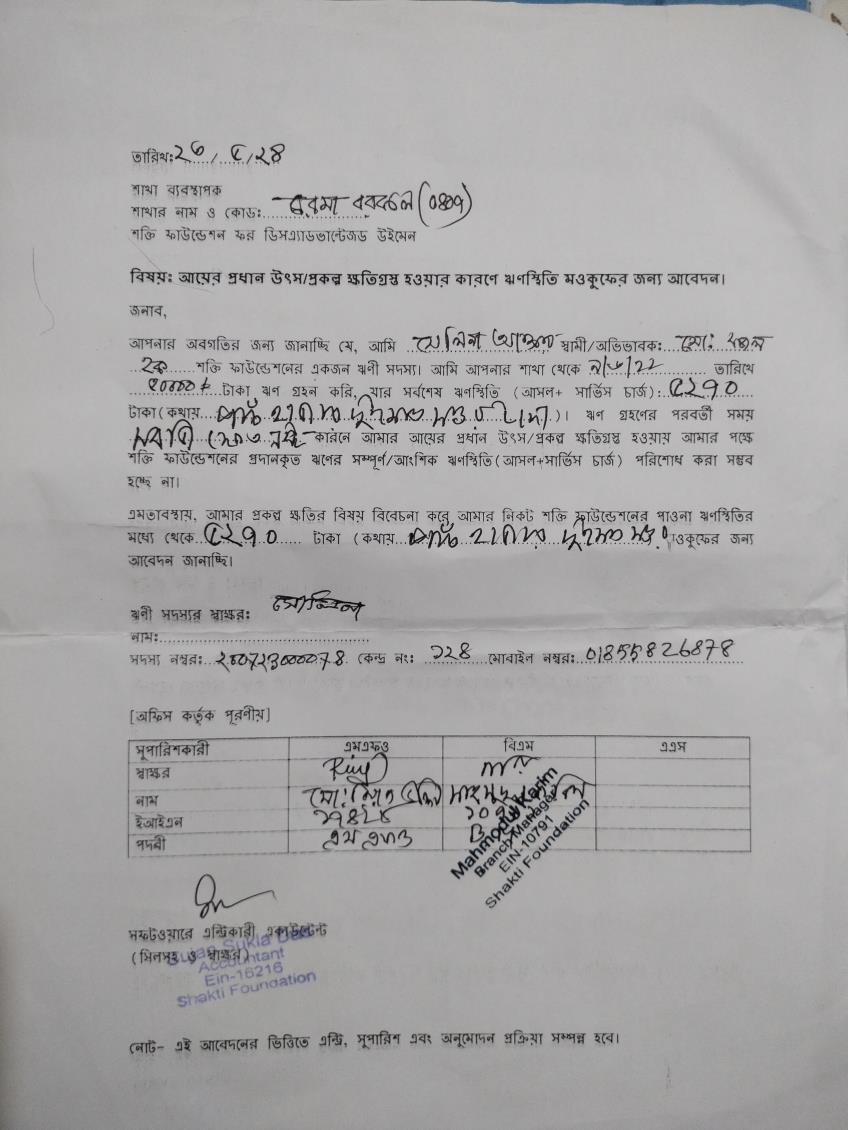 তারিখ: ২৬/৫/২৪
শাখা ব্যবস্থাপক
শাখার নাম ও কোড:
শক্তি ফাউন্ডেশন ফর ডিসএ্যাডভান্টেজড উইমেন
বিষয়: আয়ের প্রধান উৎস/প্রকল্প ক্ষতিগ্রস্থ হওয়ার কারণে ঋণস্থিতি মওকুফের জন্য আবেদন।
জনাব,
আপনার অবগতির জন্য জানাচ্ছি যে, আমি সেলিনা আক্তার স্বামী/অভিভাবক: মো:
হক শক্তি ফাউন্ডেশনের একজন ঋণী সদস্য। আমি আপনার শাখা থেকে তারিখে
৫০০০০/ টাকা ঋণ গ্রহন করি, যার সর্বশেষ ঋণস্থিতি (আসল+ সার্ভিস চার্জ): ৫২৭০
টাকা (কথায় পাঁচ হাজার দুইশত সত্তর টাকা)। ঋণ গ্রহণের পরবর্তী সময়
কারনে আমার আয়ের প্রধান উৎস/প্রকল্প ক্ষতিগ্রস্থ হওয়ায় আমার পক্ষে
শক্তি ফাউন্ডেশনের প্রদানকৃত ঋণের সম্পূর্ণ/আংশিক ঋণস্থিতি (আসল+সার্ভিস চার্জ) পরিশোধ করা সম্ভব
হচ্ছে না।
এমতাবস্থায়, আমার প্রকল্প ক্ষতির বিষয় বিবেচনা করে আমার নিকট শক্তি ফাউন্ডেশনের পাওনা ঋণস্থিতির
মধ্যে থেকে ৫২৭০ টাকা (কথায় পাঁচ হাজার দুইশত সত্তর মওকুফের জন্য
আবেদন জানাচ্ছি।
ঋণী সদস্যের স্বাক্ষর:
নাম:
সদস্য নম্বর: কেন্দ্র নং: ১২৪ মোবাইল নম্বর: 01855826878
[অফিস কর্তৃক পূরণীয়]
সুপারিশকারী এমএফও বিএম এএস
স্বাক্ষর
নাম
ইআইএন
পদবী এম এফ ও
Mahmodul Karim
Branch Manager
EIN-10791
Shakti Foundation
সফটওয়ারে এন্ট্রিকারী একাউন্টেন্ট
(সিলসহ ও স্বাক্ষর)
Accountant
Ein-16216
Shakti Foundation
নোট- এই আবেদনের ভিত্তিতে এন্ট্রি, সুপারিশ এবং অনুমোদন প্রক্রিয়া সম্পন্ন হবে।